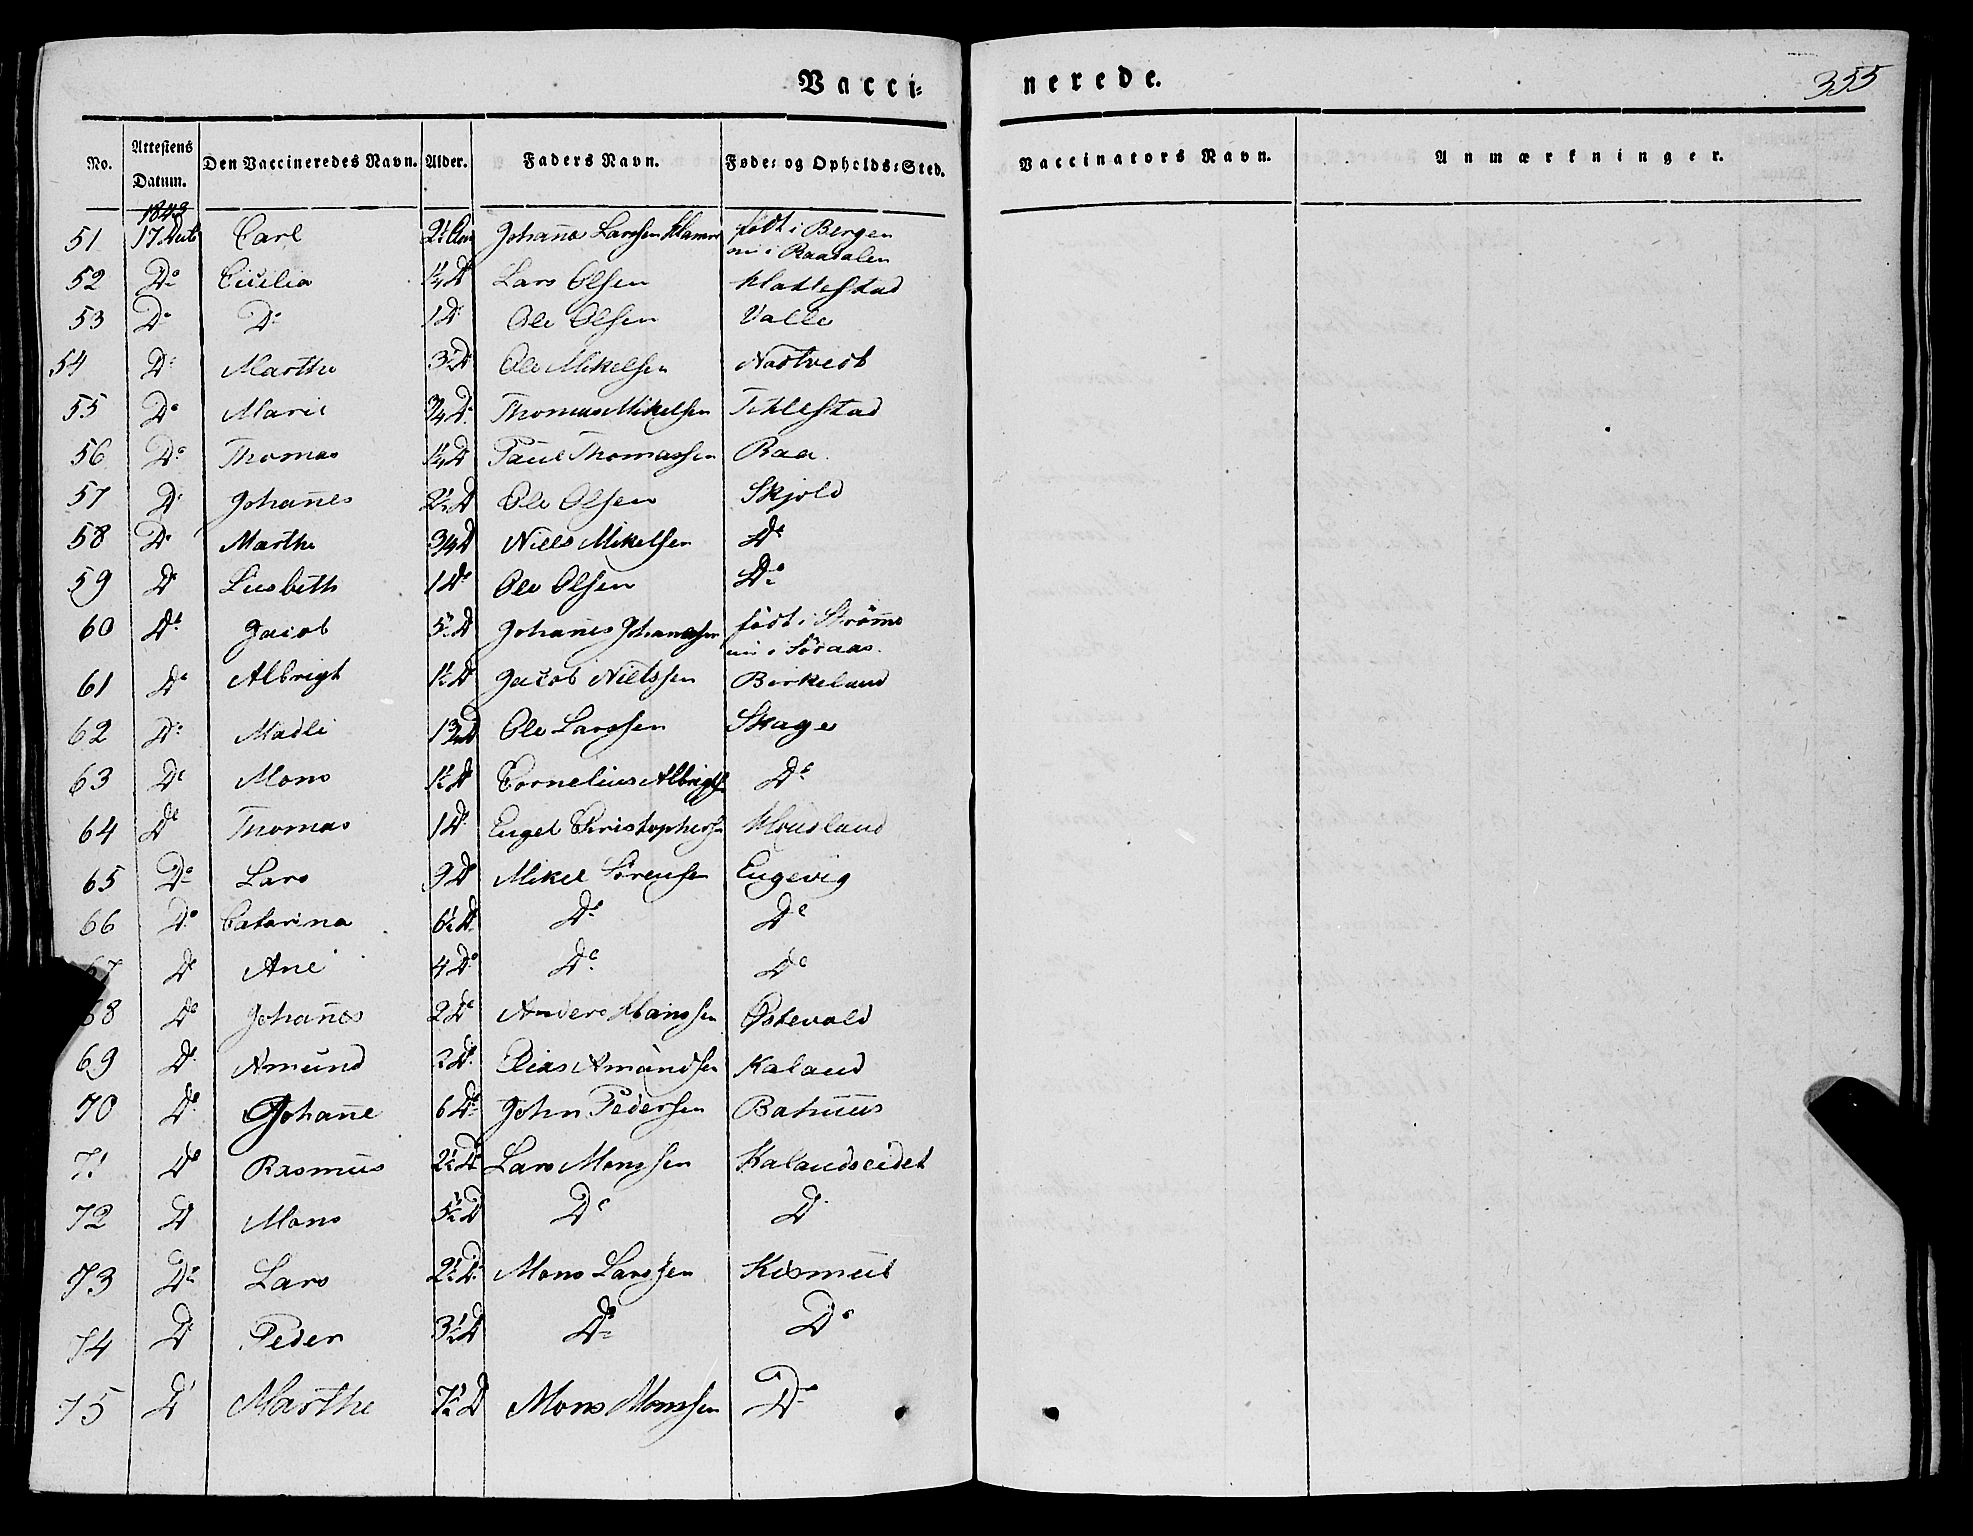 Vacci-
nerede.
355
No.
Attestens Datum.
Den Vaccineredes Navn.
Alder.
Faders Navn.
Føde- og Opholds-Sted.
Vaccinators Navn.
Anmærkninger.
1843
51 17 Carl 2½ Johannes Larssen født i Bergen
nu i Raadalen
52 Do Cicilia Do Lars Olsen Klattestad
53 Do Do 1 Do Ole Olsen Valle
54 Do Marthe 3 Do Ole Mikelsen Natvedt
55 Do Marie ¾ Do Thomas Mikelsen Titlestad
56 Do Thomas Do Paul Thomassen Raa
57 Do Johannes 2½ Do Ole Olsen Skjold
58 Do Marthe ¾ Do Niels Mikelsen Do
59 Do Liesbeth 1 Do Ole Olsen Do
60 Do Jacob 5½ Do Johannes Johannessen født i Strømme
nu i Søraas.
61 Do Albrigt 1½ Do Jacob Nielssen Birkeland
62 Do Madli 1¾ Do Ole Larssen Skage
63 Do Mons 1½ Do Cornelius Albrigts. Do
64 Do Thomas 1 Do Engel Christophers. Housland
65 Do Lars 9 Do Mikel Sørensen Engevig
66 Do Catarina 6½ Do Do Do
67 Do Ane 4 Do Do Do
68 Do Johannes 2 Do Anders Hanssen Østevold
69 Do Amund 2 Do Elias Amundsen Kaland
70 Do Johanne 6 Do John Pedersen Bahuus
71 Do Rasmus 2½ Do Lars Monssen Kalandseidet
72 Do Mons 5½ Do Do Do
73 Do Lars 2½ Do Mons Larssen Kismul
74 Do Peder 3½ Do Do Do
75 Do Marthe 7½ Do Mons Monssen Do